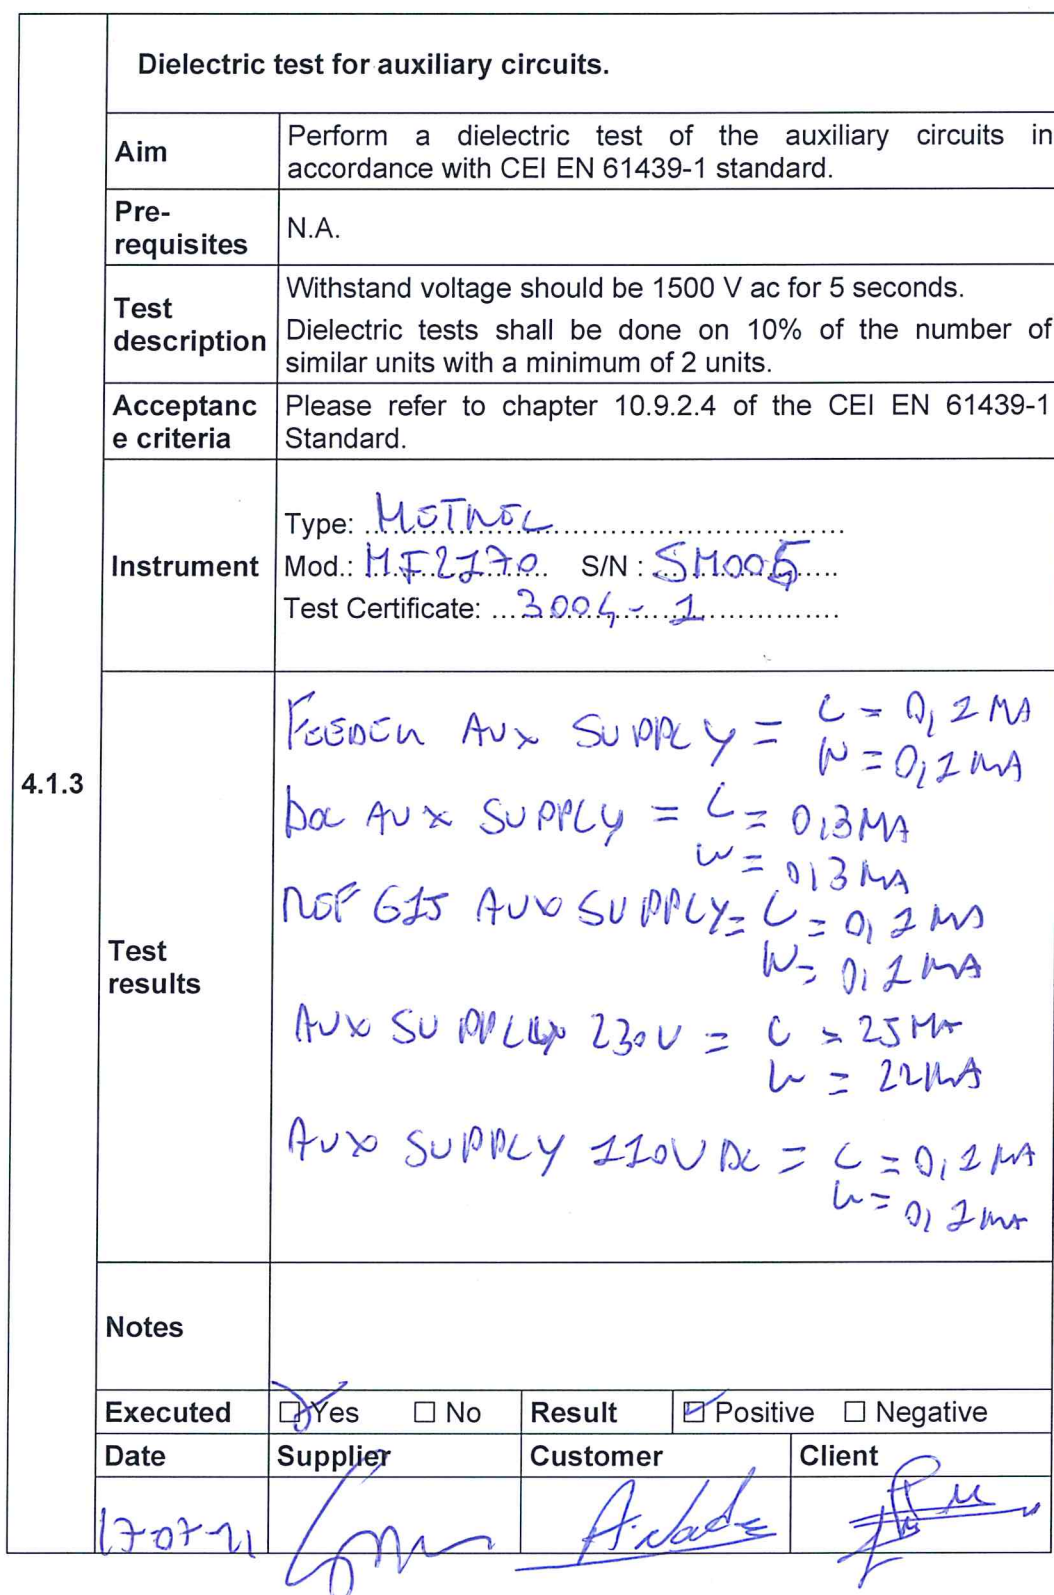 Dielectric test for auxiliary circuits.
Aim
Perform a dielectric test of the auxiliary circuits in
accordance with CEI EN 61439-1 standard.
Pre-
requisites
N.A.
Test
description
Withstand voltage should be 1500 V ac for 5 seconds.
Dielectric tests shall be done on 10% of the number of
similar units with a minimum of 2 units.
Acceptanc
e criteria
Please refer to chapter 10.9.2.4 of the CEI EN 61439-1
Standard.
Instrument
Type: METREL
Mod.: MI2170 S/N : SM005
Test Certificate: 3004-1
4.1.3
Test
results
FEEDER AUX SUPPLY = L = 0,1 MA
N = 0,1 MA
AUX SUPPLY = L = 0,3 MA
N = 0,3 MA
REF 615 AUX SUPPLY = L = 0,1 MA
N = 0,1 MA
AUX SUPPLY 230V = L = 25 MA
N = 22 MA
AUX SUPPLY 110V DC = L = 0,1 MA
N = 0,1 MA
Notes
Executed ☑ Yes ☐ No Result ☑ Positive ☐ Negative
Date Supplier Customer Client
17-07-21